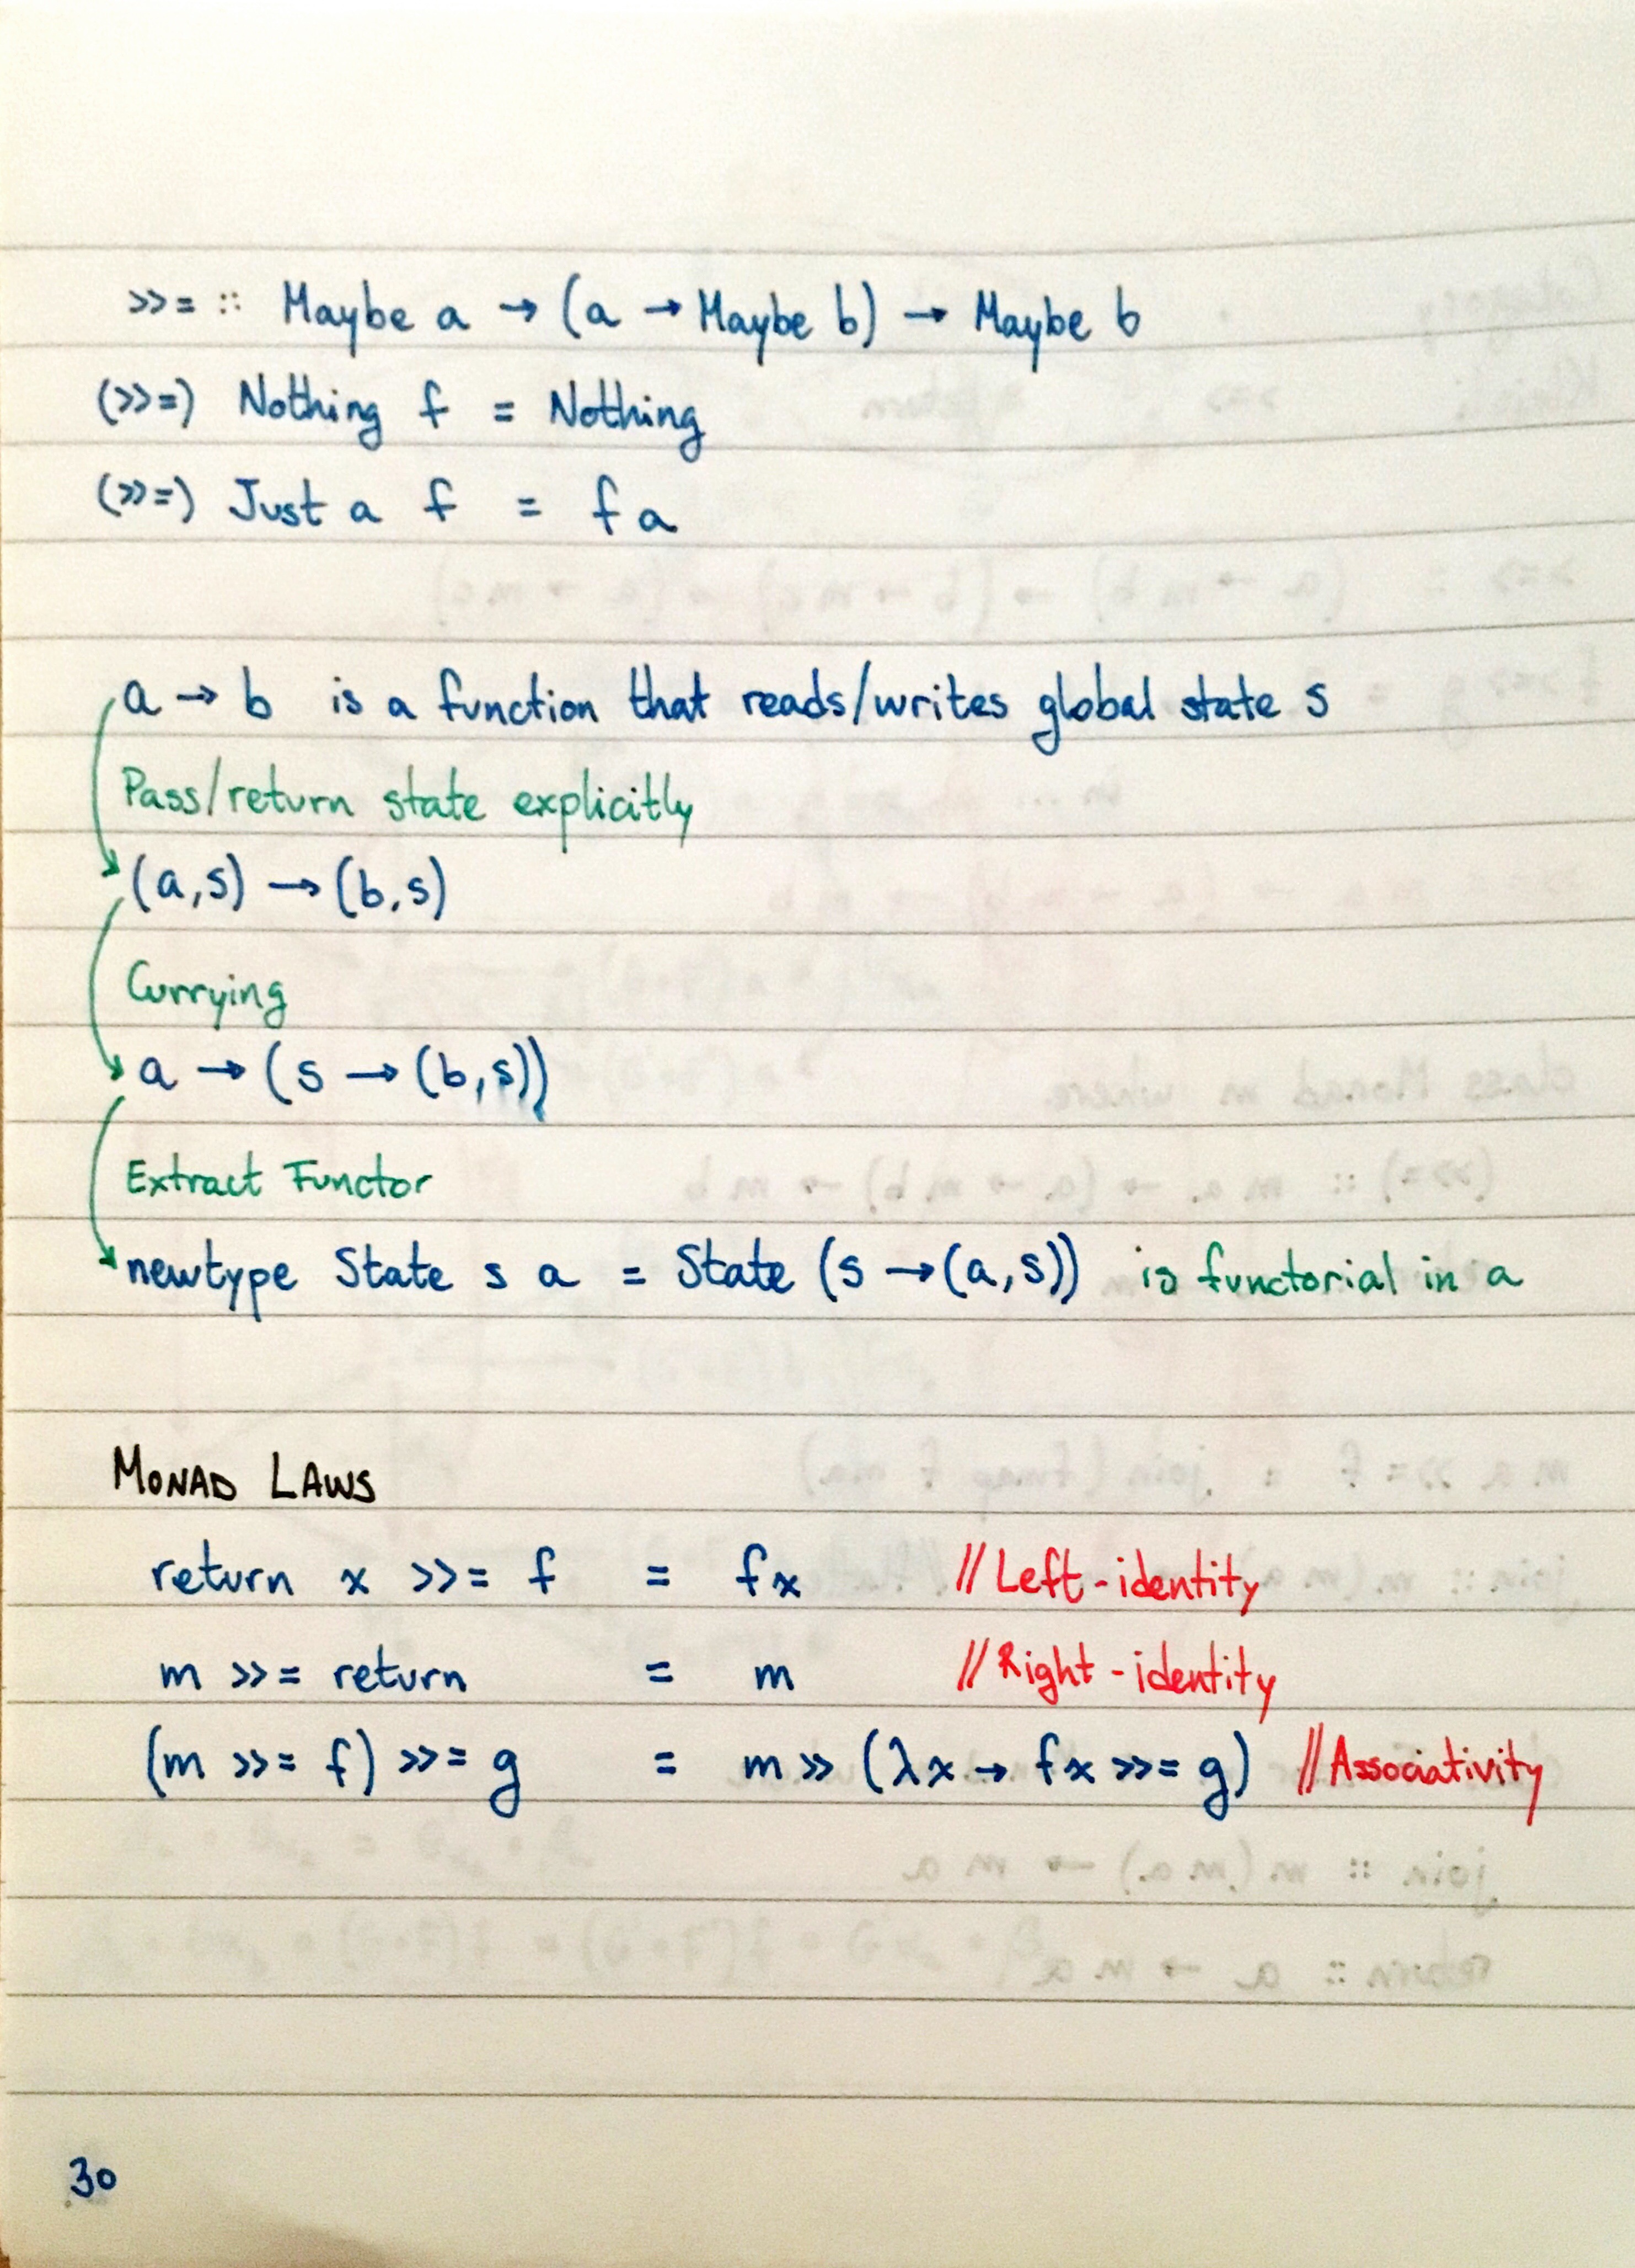 >>= :: Maybe a → (a → Maybe b) → Maybe b
(>>=) Nothing f = Nothing
(>>=) Just a f = f a
a → b is a function that reads/writes global state s
Pass/return state explicitly
(a,s) → (b,s)
Currying
a → (s → (b,s))
Extract Functor
newtype State s a = State (s → (a,s)) is functorial in a
MONAD LAWS
return x >>= f = f x //Left-identity
m >>= return = m //Right-identity
(m >>= f) >>= g = m >> (λx → f x >>= g) //Associativity
30